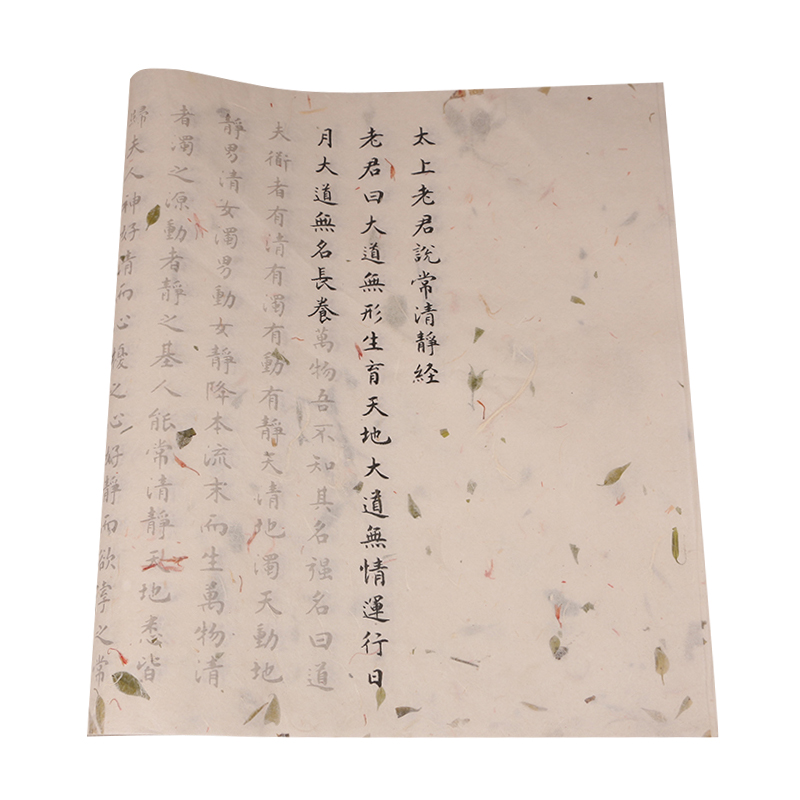 太上老君說常清靜経
老君曰大道無形生育天地大道無情運行日
月大道無名長養萬物吾不知其名强名曰道
夫衜者有清有濁有動有靜天清地濁天動地
靜男清女濁男動女靜降本流末而生萬物清
者濁之源動者靜之基人能常清靜天地悉皆
歸夫人神好清而心擾之心好靜而欲牽之常